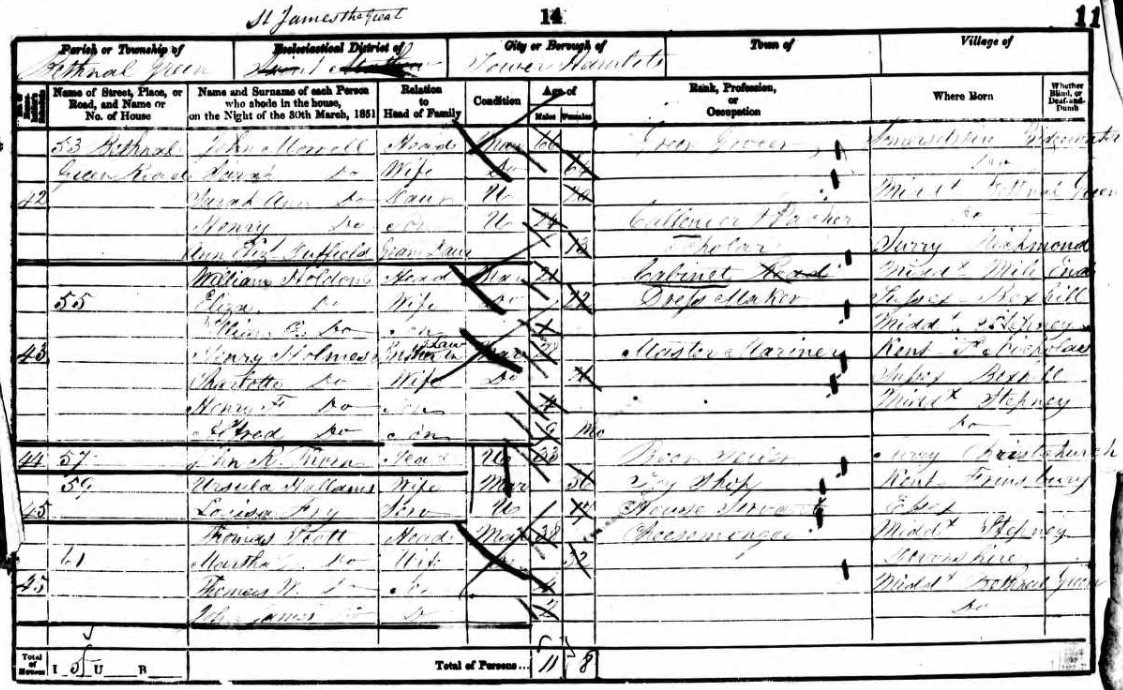 St James the Great
14
11
Parish or Township of Ecclesiastical District of City or Borough of Town of Village of
Bethnal Green Saint Matthew Tower Hamlets
Name of Street, Place, or Road, and Name or No. of House Name and Surname of each Person who abode in the house, on the Night of the 30th March, 1851 Relation to Head of Family Condition Age of Males Females Rank, Profession, or Occupation Where Born Whether Blind, or Deaf-and-Dumb
53 Bethnal John Head Mar 66 Green Grocer Somersetshire Bridgewater
Green Road Sarah Do Wife Do 64 Do
42 Sarah Ann Do Daur U Midx Bethnal Green
Henry Do Son U 24 Do
Ann Eliz Duffield Grand Daur 13 Scholar Surry Richmond
William Holdom Head Mar 21 Cabinet Midx Mile End
55 Eliza Do Wife Do 22 Dress Maker Sussex Bexhill
William Do Son Midd Stepney
43 Henry Holmes Brother in Law Mar Master Mariner Kent St Nicholas
Charlotte Do Wife Do Sussex Bexhill
Henry F Do Son 4 Midx Stepney
Alfred Do Son 9 Mo Do
44 57 John R. Head U 33 Beer Seller Surry Christchurch
59 Ursula Hallams Wife Mar 36 Toy Shop Kent Frinsbury
45 Louisa Fry Serv U 14 House Servant Essex
Thomas Scott Head Mar 38 Cheesemonger Midd Stepney
61 Martha Do Wife 32 Devonshire
45 Thomas W. Do 4 Midd Bethnal Green
John James 2 Do
Total of Houses I 5 U B Total of Persons... 11 8